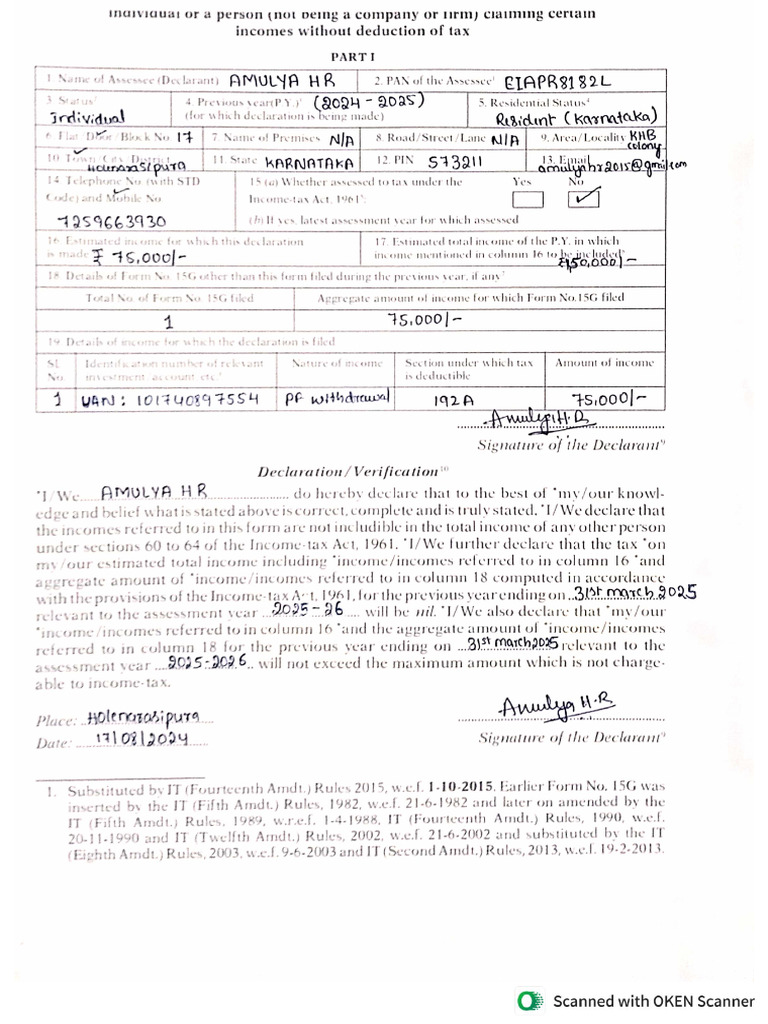 Individual or a person (not being a company or firm) claiming certain
incomes without deduction of tax
PART I
1. Name of Assessee (Declarant) AMULYA H R 2. PAN of the Assessee¹ EIAPR8182L
3. Status² Individual 4. Previous year(P.Y.)³ (2024-2025) (for which declaration is being made) 5. Residential Status⁴ Resident (Karnataka)
6. Flat/Door/Block No. 17 7. Name of Premises N/A 8. Road/Street/Lane N/A 9. Area/Locality KHB colony
10. Town/City/District Holenarasipura 11. State KARNATAKA 12. PIN 573211 13. Email amulyahr2015@gmail.com
14. Telephone No. (with STD Code) and Mobile No. 7259663930
15 (a) Whether assessed to tax under the Income-tax Act, 1961⁵: Yes No ✓
(b) If yes, latest assessment year for which assessed
16. Estimated income for which this declaration is made ₹ 75,000/-
17. Estimated total income of the P.Y. in which income mentioned in column 16 to be included⁶ ₹150,000/-
18. Details of Form No. 15G other than this form filed during the previous year, if any⁷
Total No. of Form No. 15G filed Aggregate amount of income for which Form No.15G filed
1 75,000/-
19. Details of income for which the declaration is filed
Sl. No. Identification number of relevant investment/account, etc.⁸ Nature of income Section under which tax is deductible Amount of income
1 UAN: 101740897554 PF withdrawal 192A 75,000/-
Amulya H.R
Signature of the Declarant⁹
Declaration/Verification¹⁰
*I/We AMULYA H R do hereby declare that to the best of *my/our knowl-
edge and belief what is stated above is correct, complete and is truly stated. *I/We declare that
the incomes referred to in this form are not includible in the total income of any other person
under sections 60 to 64 of the Income-tax Act, 1961. *I/We further declare that the tax *on
my/our estimated total income including *income/incomes referred to in column 16 *and
aggregate amount of *income/incomes referred to in column 18 computed in accordance
with the provisions of the Income-tax Act, 1961, for the previous year ending on 31st march 2025
relevant to the assessment year 2025-26 will be nil. *I/We also declare that *my/our
*income/incomes referred to in column 16 *and the aggregate amount of *income/incomes
referred to in column 18 for the previous year ending on 31st march 2025 relevant to the
assessment year 2025-2026 will not exceed the maximum amount which is not charge-
able to income-tax.
Place: Holenarasipura
Date: 17/08/2024
Amulya H.R
Signature of the Declarant⁹
1. Substituted by IT (Fourteenth Amdt.) Rules 2015, w.e.f. 1-10-2015. Earlier Form No. 15G was
inserted by the IT (Fifth Amdt.) Rules, 1982, w.e.f. 21-6-1982 and later on amended by the
IT (Fifth Amdt.) Rules, 1989, w.r.e.f. 1-4-1988, IT (Fourteenth Amdt.) Rules, 1990, w.e.f.
20-11-1990 and IT (Twelfth Amdt.) Rules, 2002, w.e.f. 21-6-2002 and substituted by the IT
(Eighth Amdt.) Rules, 2003, w.e.f. 9-6-2003 and IT (Second Amdt.) Rules, 2013, w.e.f. 19-2-2013.
Scanned with OKEN Scanner